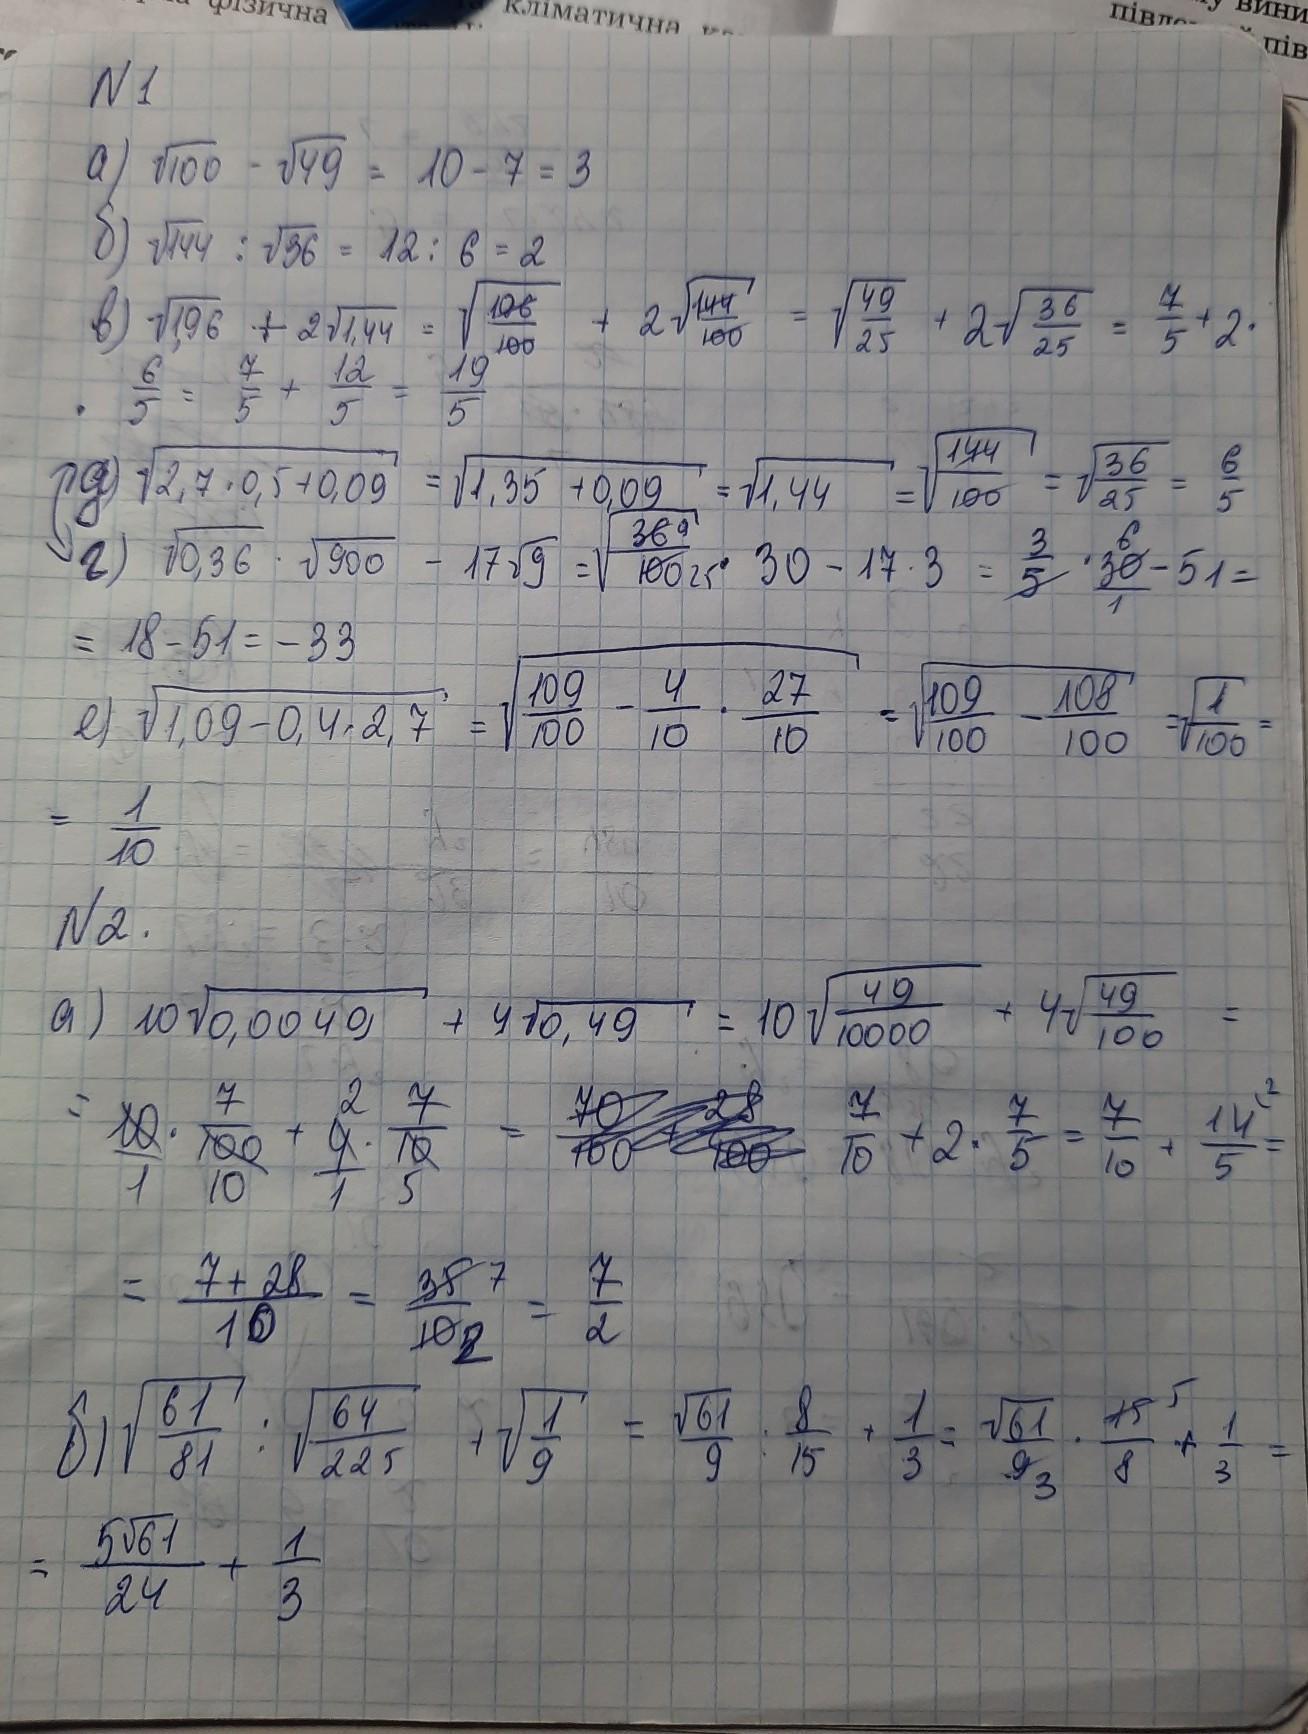 фізична
кліматична
вини
пів
N1
а) √100 - √49 = 10 - 7 = 3
б) √144 : √36 = 12 : 6 = 2
в) √1,96 + 2√1,44 = √(196/100) + 2√(144/100) = √(49/25) + 2√(36/25) = 7/5 + 2 ·
· 6/5 = 7/5 + 12/5 = 19/5
д) √(2,7·0,5+0,09) = √(1,35+0,09) = √1,44 = √(144/100) = √(36/25) = 6/5
г) √0,36 · √900 - 17√9 = √(36 9/100 25) · 30 - 17·3 = 3/5 · 30 6/1 - 51 =
= 18 - 51 = -33
е) √(1,09-0,4·2,7) = √(109/100 - 4/10 · 27/10) = √(109/100 - 108/100) = √(1/100) =
= 1/10
N2.
а) 10√0,0049 + 4√0,49 = 10√(49/10000) + 4√(49/100) =
= 10/1 · 7/100 10 + 4 2/1 · 7/10 5 = 70/100 + 28/100 7/10 + 2· 7/5 = 7/10 + 14/5 2 =
= (7+28)/10 = 35 7/10 2 = 7/2
б) √(61/81) : √(64/225) + √(1/9) = √61/9 : 8/15 + 1/3 = √61/9 3 · 15 5/8 + 1/3 =
= 5√61/24 + 1/3